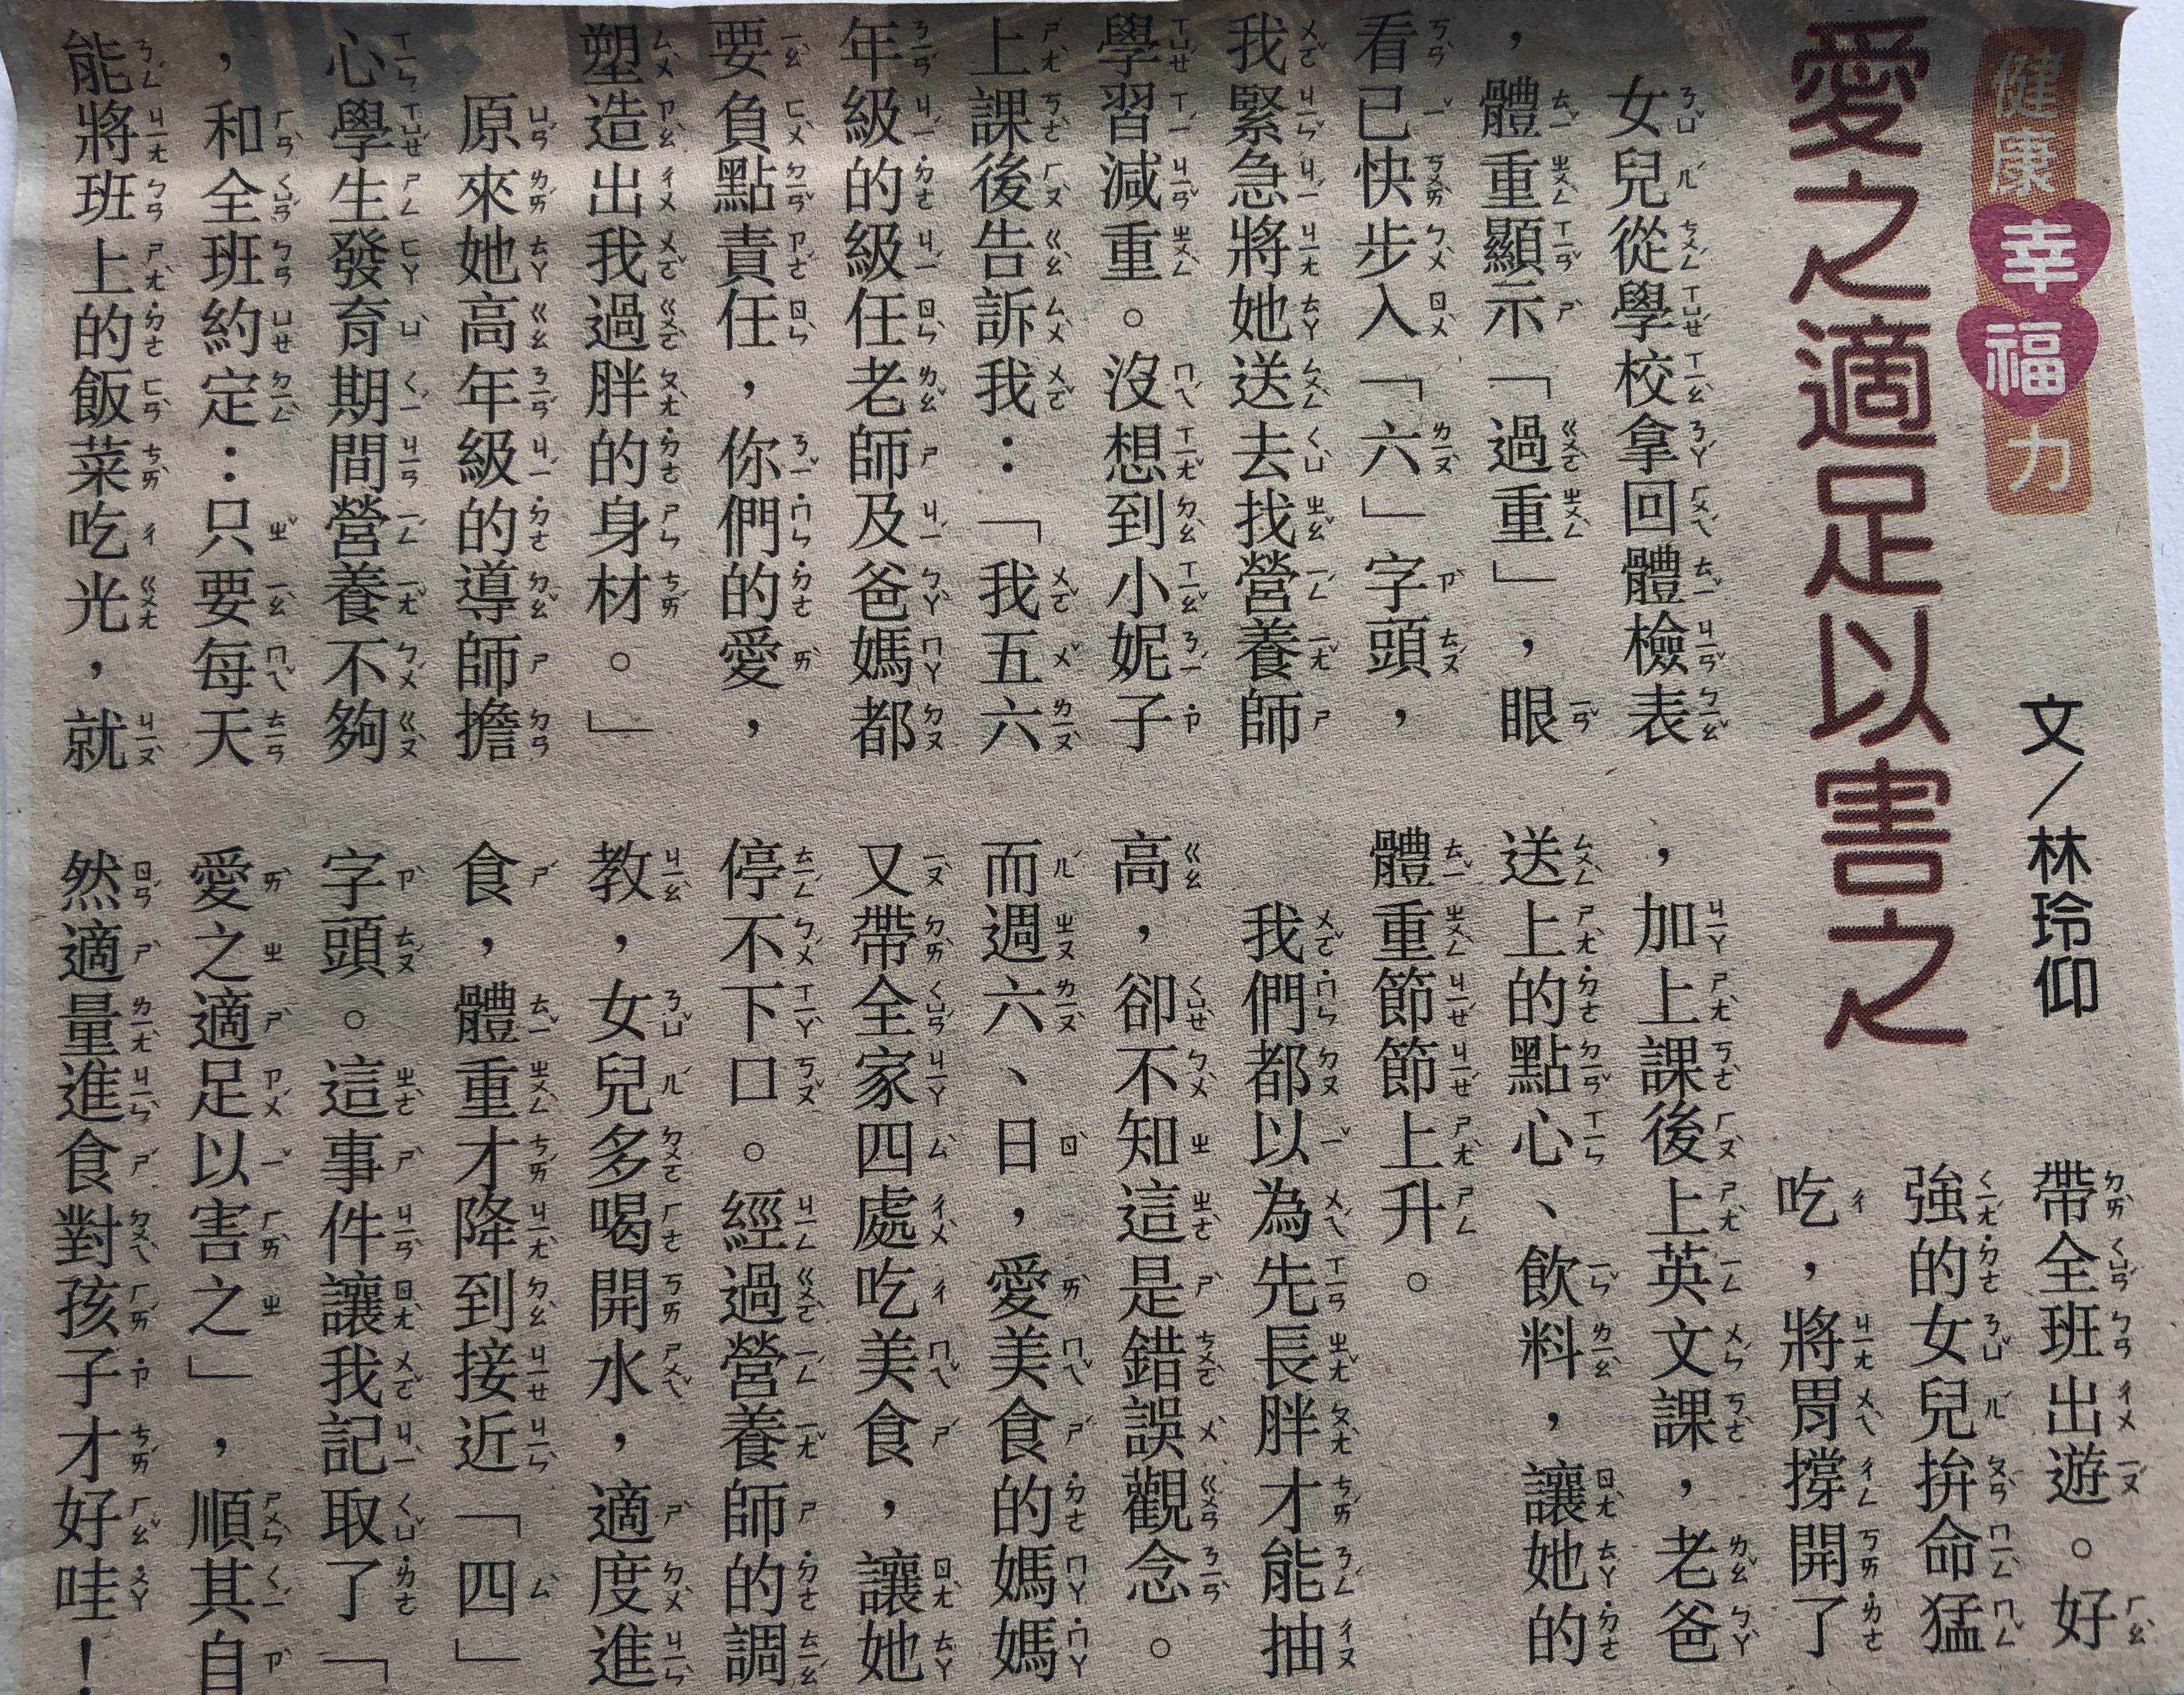 健康幸福力
愛之適足以害之
文／林玲仰
女兒從學校拿回體檢表
，體重顯示「過重」，眼
看已快步入「六」字頭，
我緊急將她送去找營養師
學習減重。沒想到小妮子
上課後告訴我：「我五六
年級的級任老師及爸媽都
要負點責任，你們的愛，
塑造出我過胖的身材。」
原來她高年級的導師擔
心學生發育期間營養不夠
，和全班約定：只要每天
能將班上的飯菜吃光，就
帶全班出遊。好
強的女兒拚命猛
吃，將胃撐開了
，加上課後上英文課，老爸
送上的點心、飲料，讓她的
體重節節上升。
我們都以為先長胖才能抽
高，卻不知這是錯誤觀念。
而週六、日，愛美食的媽媽
又帶全家四處吃美食，讓她
停不下口。經過營養師的調
教，女兒多喝開水，適度進
食，體重才降到接近「四」
字頭。這事件讓我記取了「
愛之適足以害之」，順其自
然適量進食對孩子才好哇！